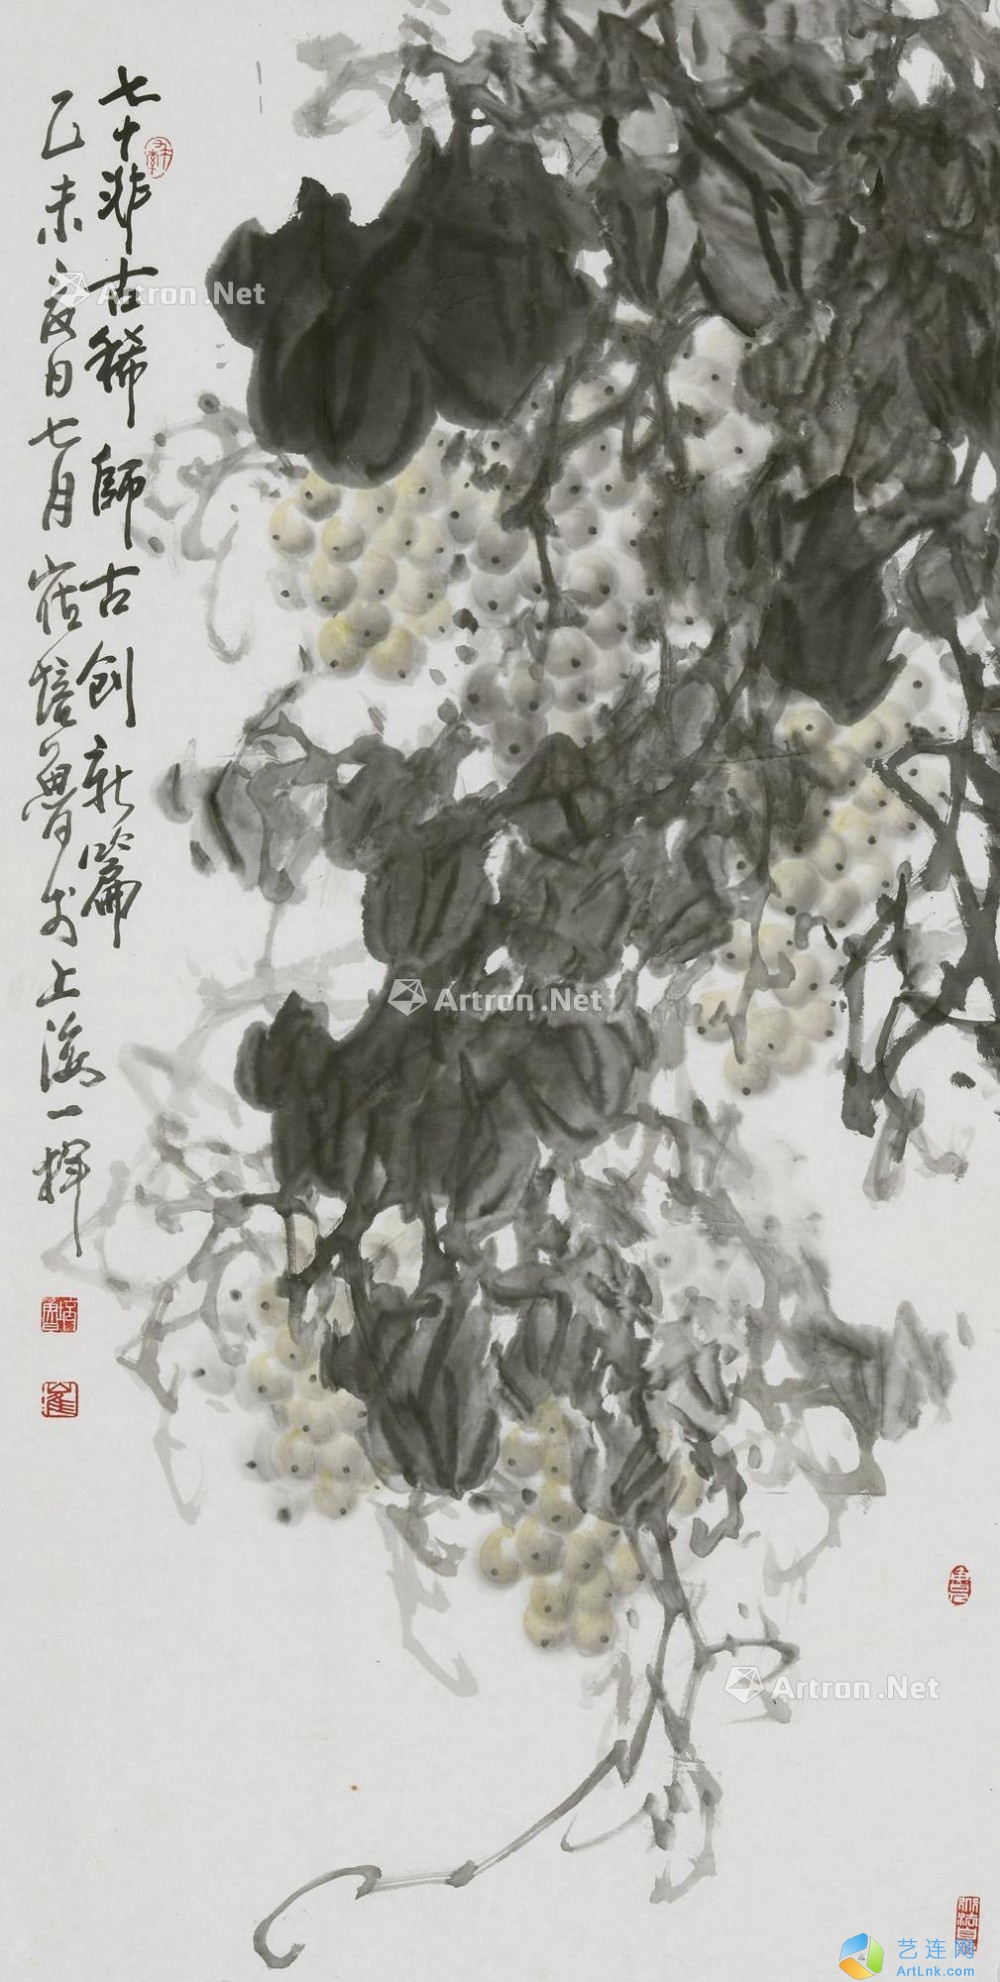 七十非古稀師古創新篇
乙未夏日七月崔培魯於上海一揮
Artron.Net
Artron.Net
Artron.Net
艺连网
ArtLnk.com